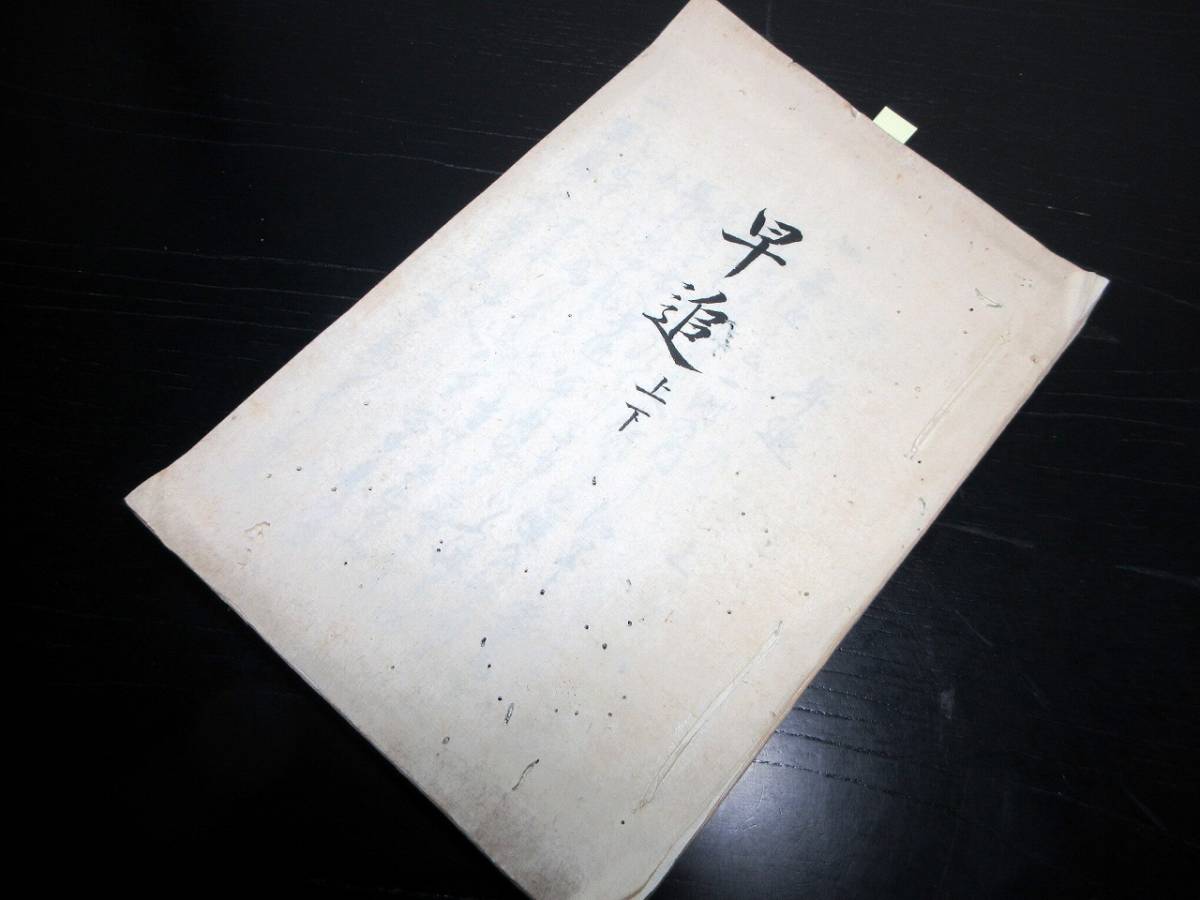 早追上下